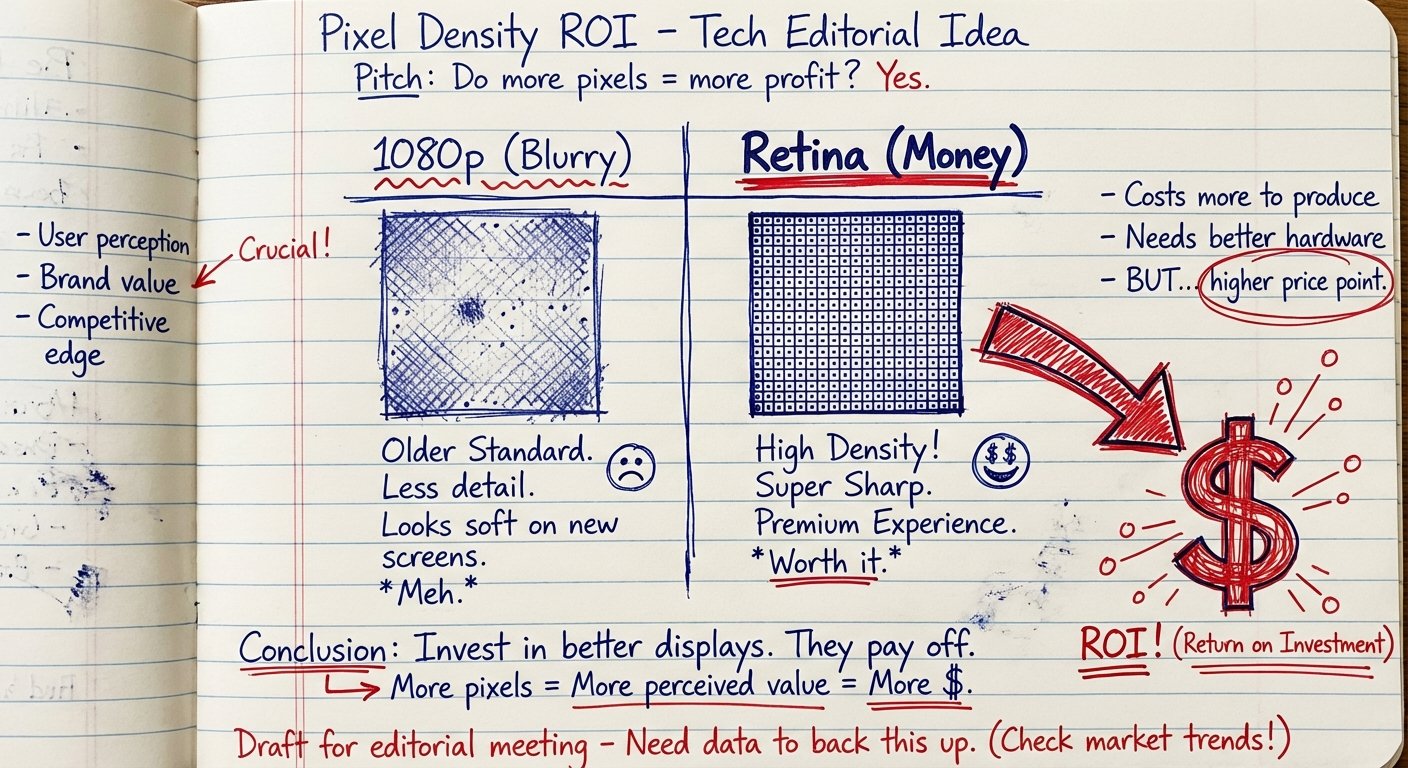 Pixel Density ROI – Tech Editorial Idea
Pitch: Do more pixels = more profit? Yes.
1080p (Blurry)
Older Standard.
Less detail.
Looks soft on new
screens.
*Meh.*
Retina (Money)
High Density!
Super Sharp.
Premium Experience.
*Worth it.*
– User perception
– Brand value
– Competitive
edge
Crucial!
– Costs more to produce
– Needs better hardware
– BUT... higher price point.
$
ROI! (Return on Investment)
Conclusion: Invest in better displays. They pay off.
More pixels = More perceived value = More $.
Draft for editorial meeting – Need data to back this up. (Check market trends!)